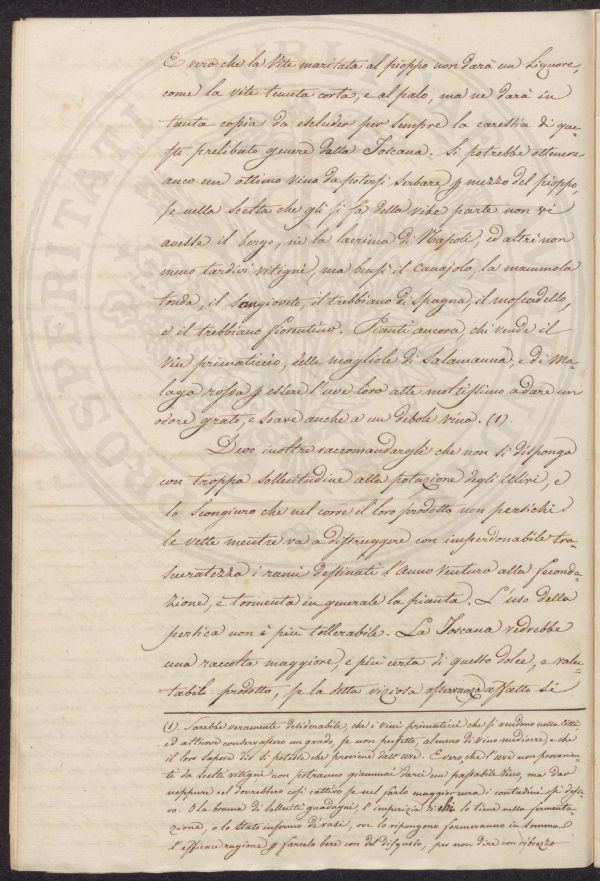 E vero che la Vite maritata al pioppo non darà un Liquore,
come la vite tenuta corta, e al palo, ma ne darà in
tanta copia da escluder per sempre la carestia di que=
sto prelibato genere dalla Toscana. Si potrebbe ottenere
anco un ottimo vino da potersi serbare p mezzo del pioppo,
se nella scelta che gli si fà della vite parte non vi
avesse il borgo, nè la lacrima di Napoli, ed altri non
meno tardivi vitigni, ma bensì il canajolo, la mammola
tonda, il sangioveto, il trebbiano di Spagna, il moscadello,
e il trebbiano fiorentino. Pianti ancora, chi vende il
vin primaticcio, delle magliole di Salamanna, e di Ma=
laga rossa p essere l'uve loro atte moltissimo a dare un
odore grato, e soave anche a un debole vino. (1)
Devo inoltre raccomandargli che non si disponga
con troppa sollecitudine alla potazione degli Ulivi, e
lo scongiuro che nel corre il loro prodotto non perti­chi
le vette mentre va a distruggere con imperdonabile tra=
scuratezza i rami destinati l'anno venturo alla feconda=
zione, e tormenta in generale la pianta. L'uso della
pertica non è più tollerabile. La Toscana vedrebbe
una raccolta maggiore, e più certa di questo dolce, e valu=
tabile prodotto, se la detta viziosa osservanza affatto si
(1). Sarebbe veramente desiderabile, che i vini primaticci che si vendono nella Città
ed altrove conservassero un grado, se non perfetto, almeno di vino mediocre, e che
il loro sapore dir si potesse che proviene dall'uve. E vero, che l'uve non provenien=
ti da scelti vitigni non potranno giammai darci un passabile vino, ma dav
neppure cel dovrebbero così cattivo se nel farlo maggior cura i contadini si dasse=
ro. O la brama di solleciti guadagni, l'imperizia di chi lo tiene nella fermenta=
zione, o lo stato infermo de vasi, ove lo ripongono formeranno in somma
l'efficace ragione p farcelo bere con del disgusto, per non dire con ribrezzo
PROSPERITATI PUBLICAE